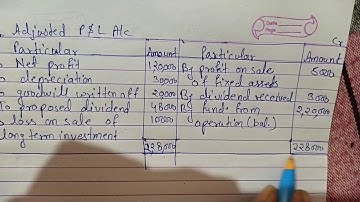 Adjusted P&L A/c
Cr
Particular Amount Particular Amount
Net profit 120000 By profit on sale 5000
depreciation 20000 of fixed assets
goodwill written off 20000 By dividend received 3000
To proposed dividend 48000 By funds from 2,20,000
loss on sale of 10000 operation (bal.)
long term investment
228000 228000